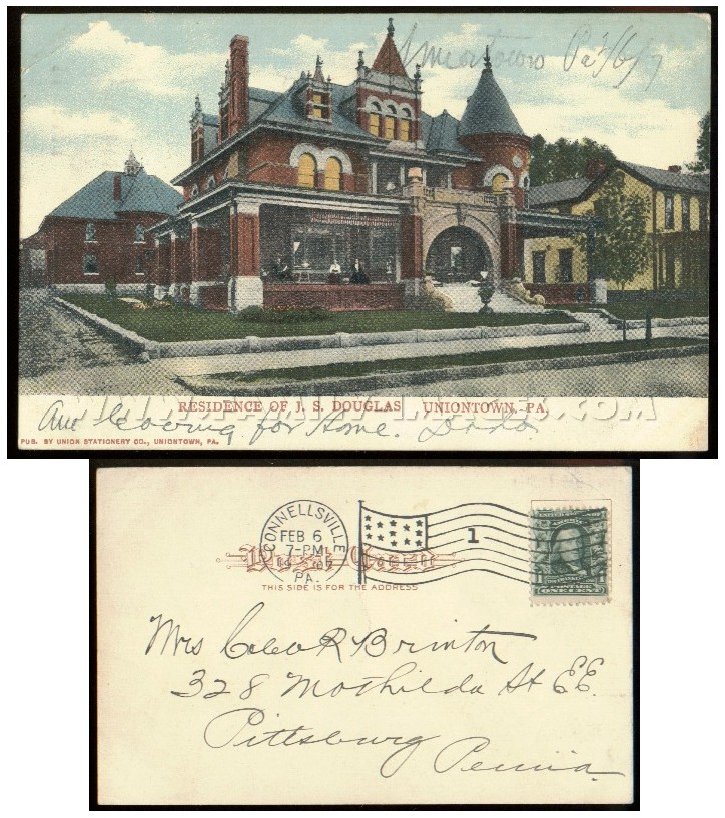 Uniontown Pa 2/6/7
RESIDENCE OF J. S. DOUGLAS UNIONTOWN, PA.
Am leaving for Home. Dado
PUB. BY UNION STATIONERY CO., UNIONTOWN, PA.
CONNELLSVILLE
FEB 6
7-PM
1907
PA.
1
Post Card
THIS SIDE IS FOR THE ADDRESS
POSTAGE
ONE CENT
Mrs R Brinton
328 Mathilda St EE.
Pittsburg
Penna